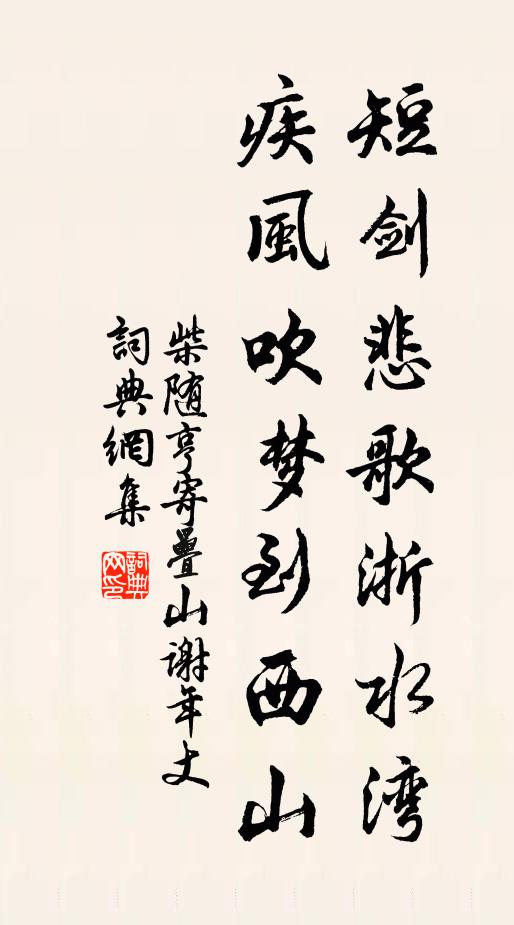 短剑悲歌浙水湾
疾風吹梦到西山
柴随亨寄疊山謝年丈
詞典網集
詞典网印